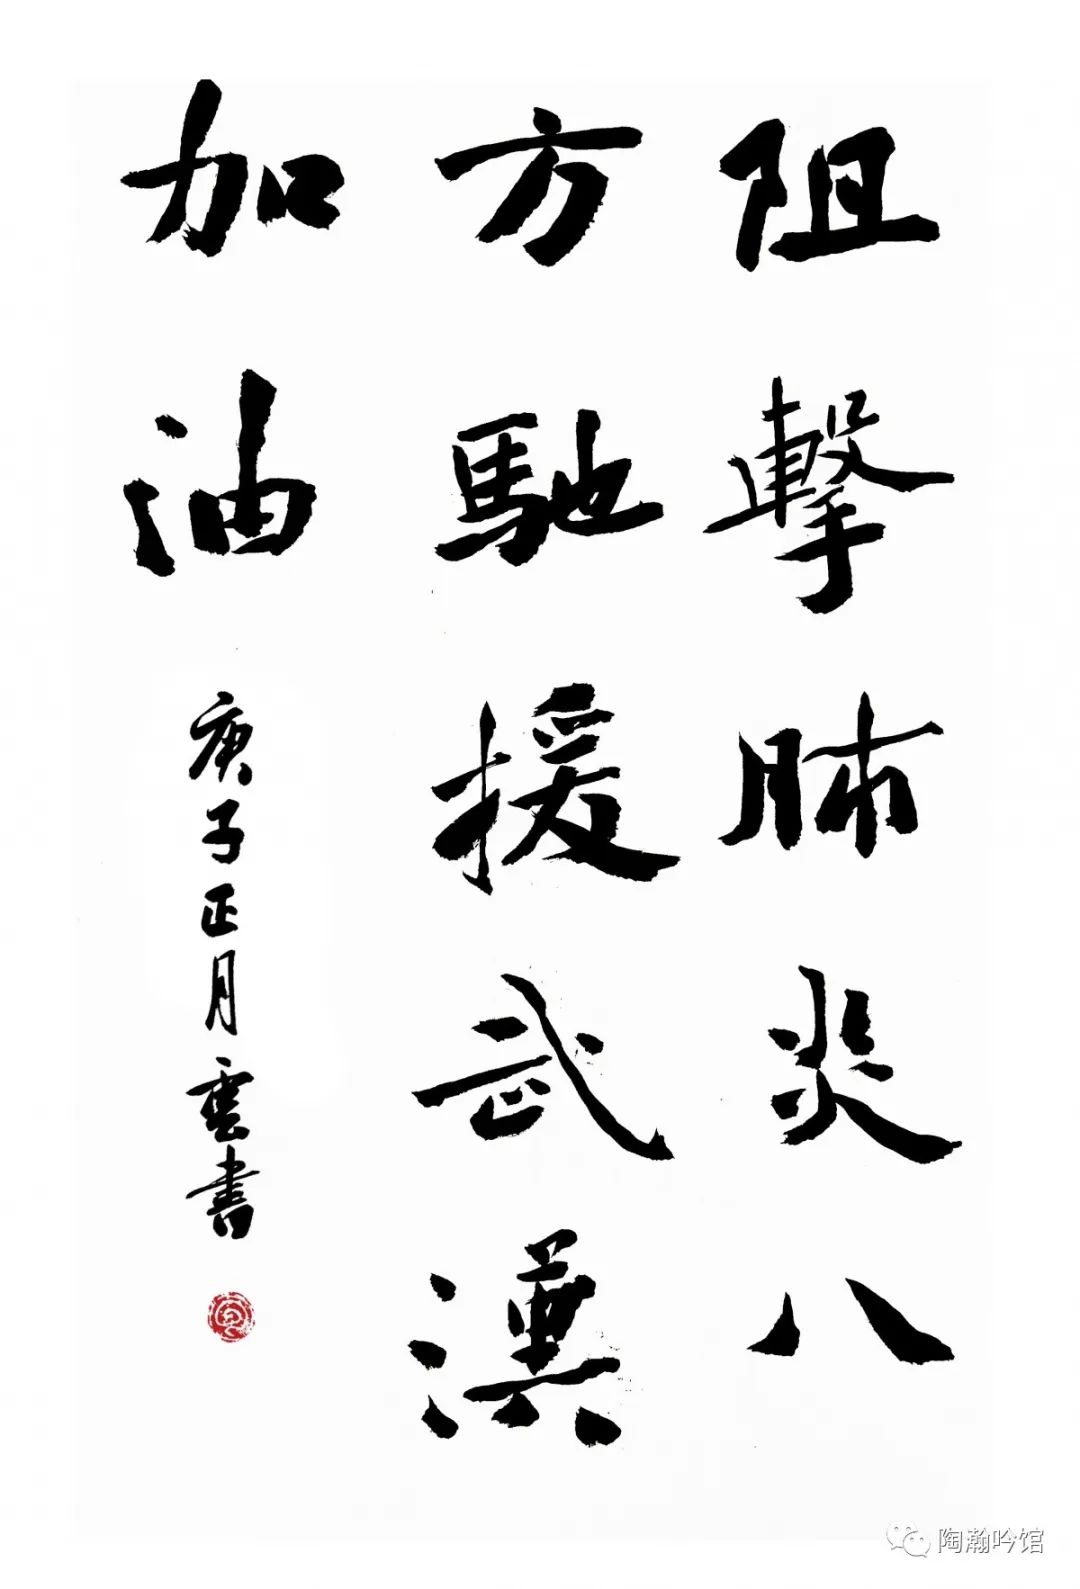 阻擊肺炎八
方馳援武漢
加油
庚子正月雲書
陶瀚吟馆